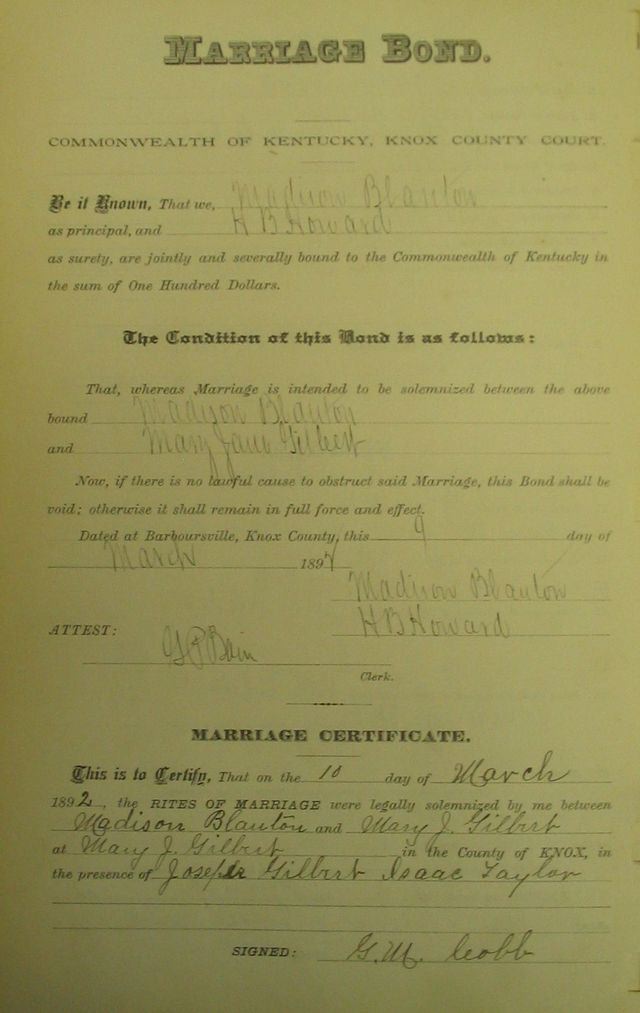 MARRIAGE BOND.
COMMONWEALTH OF KENTUCKY, KNOX COUNTY COURT.
Be it Known, That we, Madison Blanton
as principal, and H B Howard
as surety, are jointly and severally bound to the Commonwealth of Kentucky in
the sum of One Hundred Dollars.
The Condition of this Bond is as follows:
That, whereas Marriage is intended to be solemnized between the above
bound Madison Blanton
and Mary Jane Gilbert
Now, if there is no lawful cause to obstruct said Marriage, this Bond shall be
void; otherwise it shall remain in full force and effect.
Dated at Barboursville, Knox County, this 9 day of
March 189
Madison Blanton
H B Howard
ATTEST:
Bain
Clerk.
MARRIAGE CERTIFICATE.
This is to Certify, That on the 10 day of March
1892, the RITES OF MARRIAGE were legally solemnized by me between
Madison Blanton and Mary J. Gilbert
at Mary J. Gilbert in the County of KNOX, in
the presence of Joseph Gilbert Isaac Taylor
SIGNED: G.M. Cobb